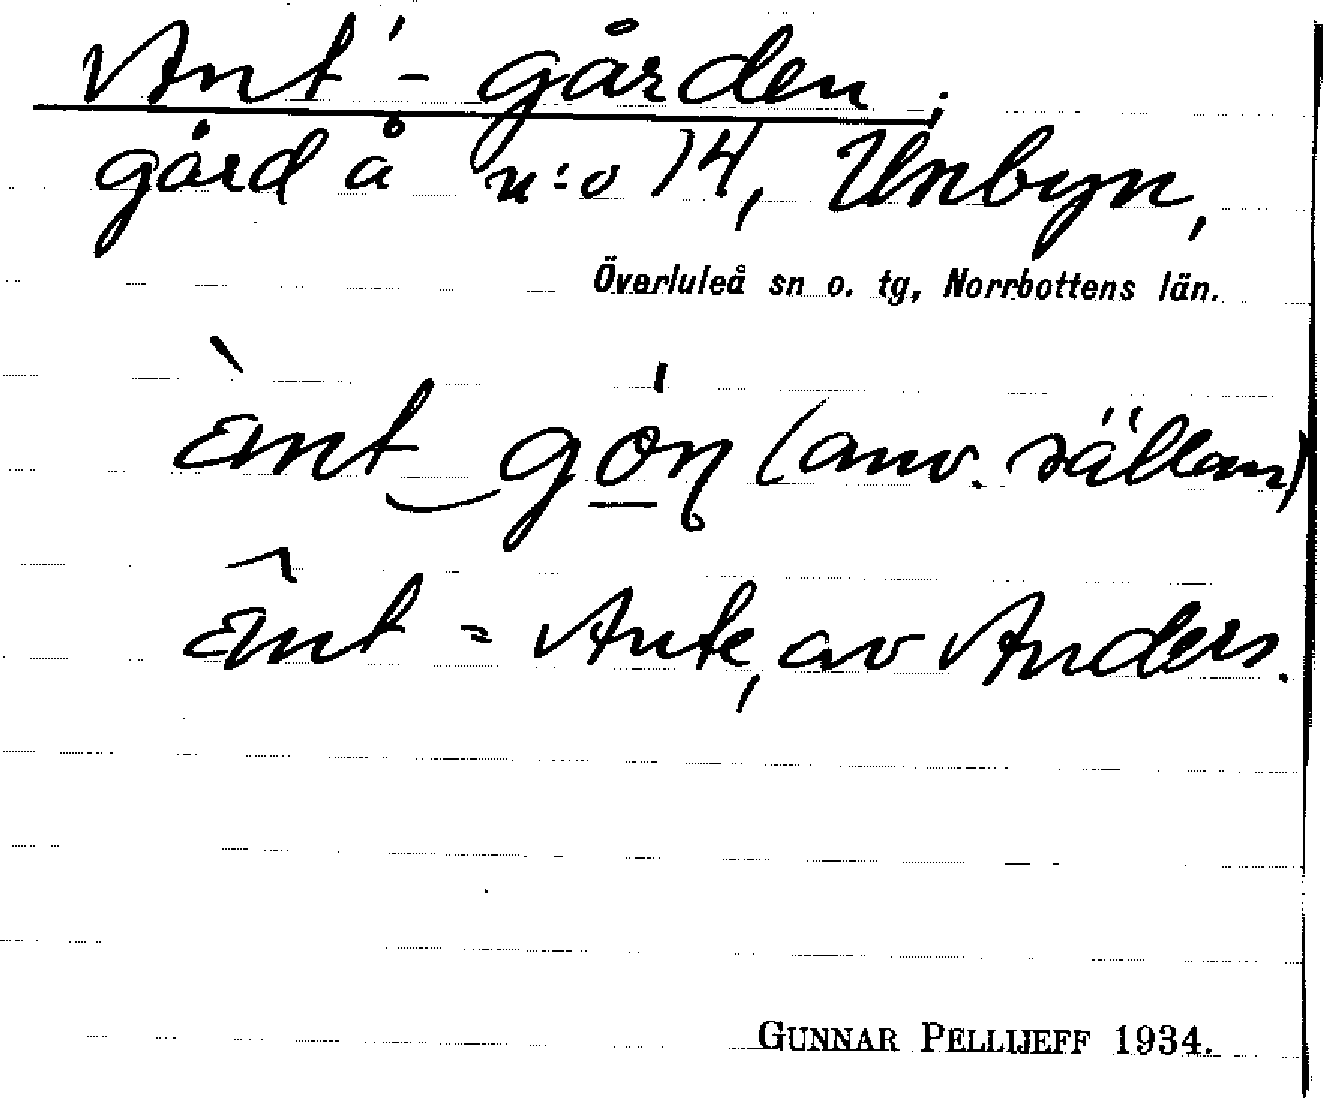 Ant'-gården,
gård å n:o 14, Unbyn,
Överluleå sn o. tg, Norrbottens län.
ènt‿gón (anv. sällan)
ênt = Ante, av Anders.
GUNNAR PELLIJEFF 1934.